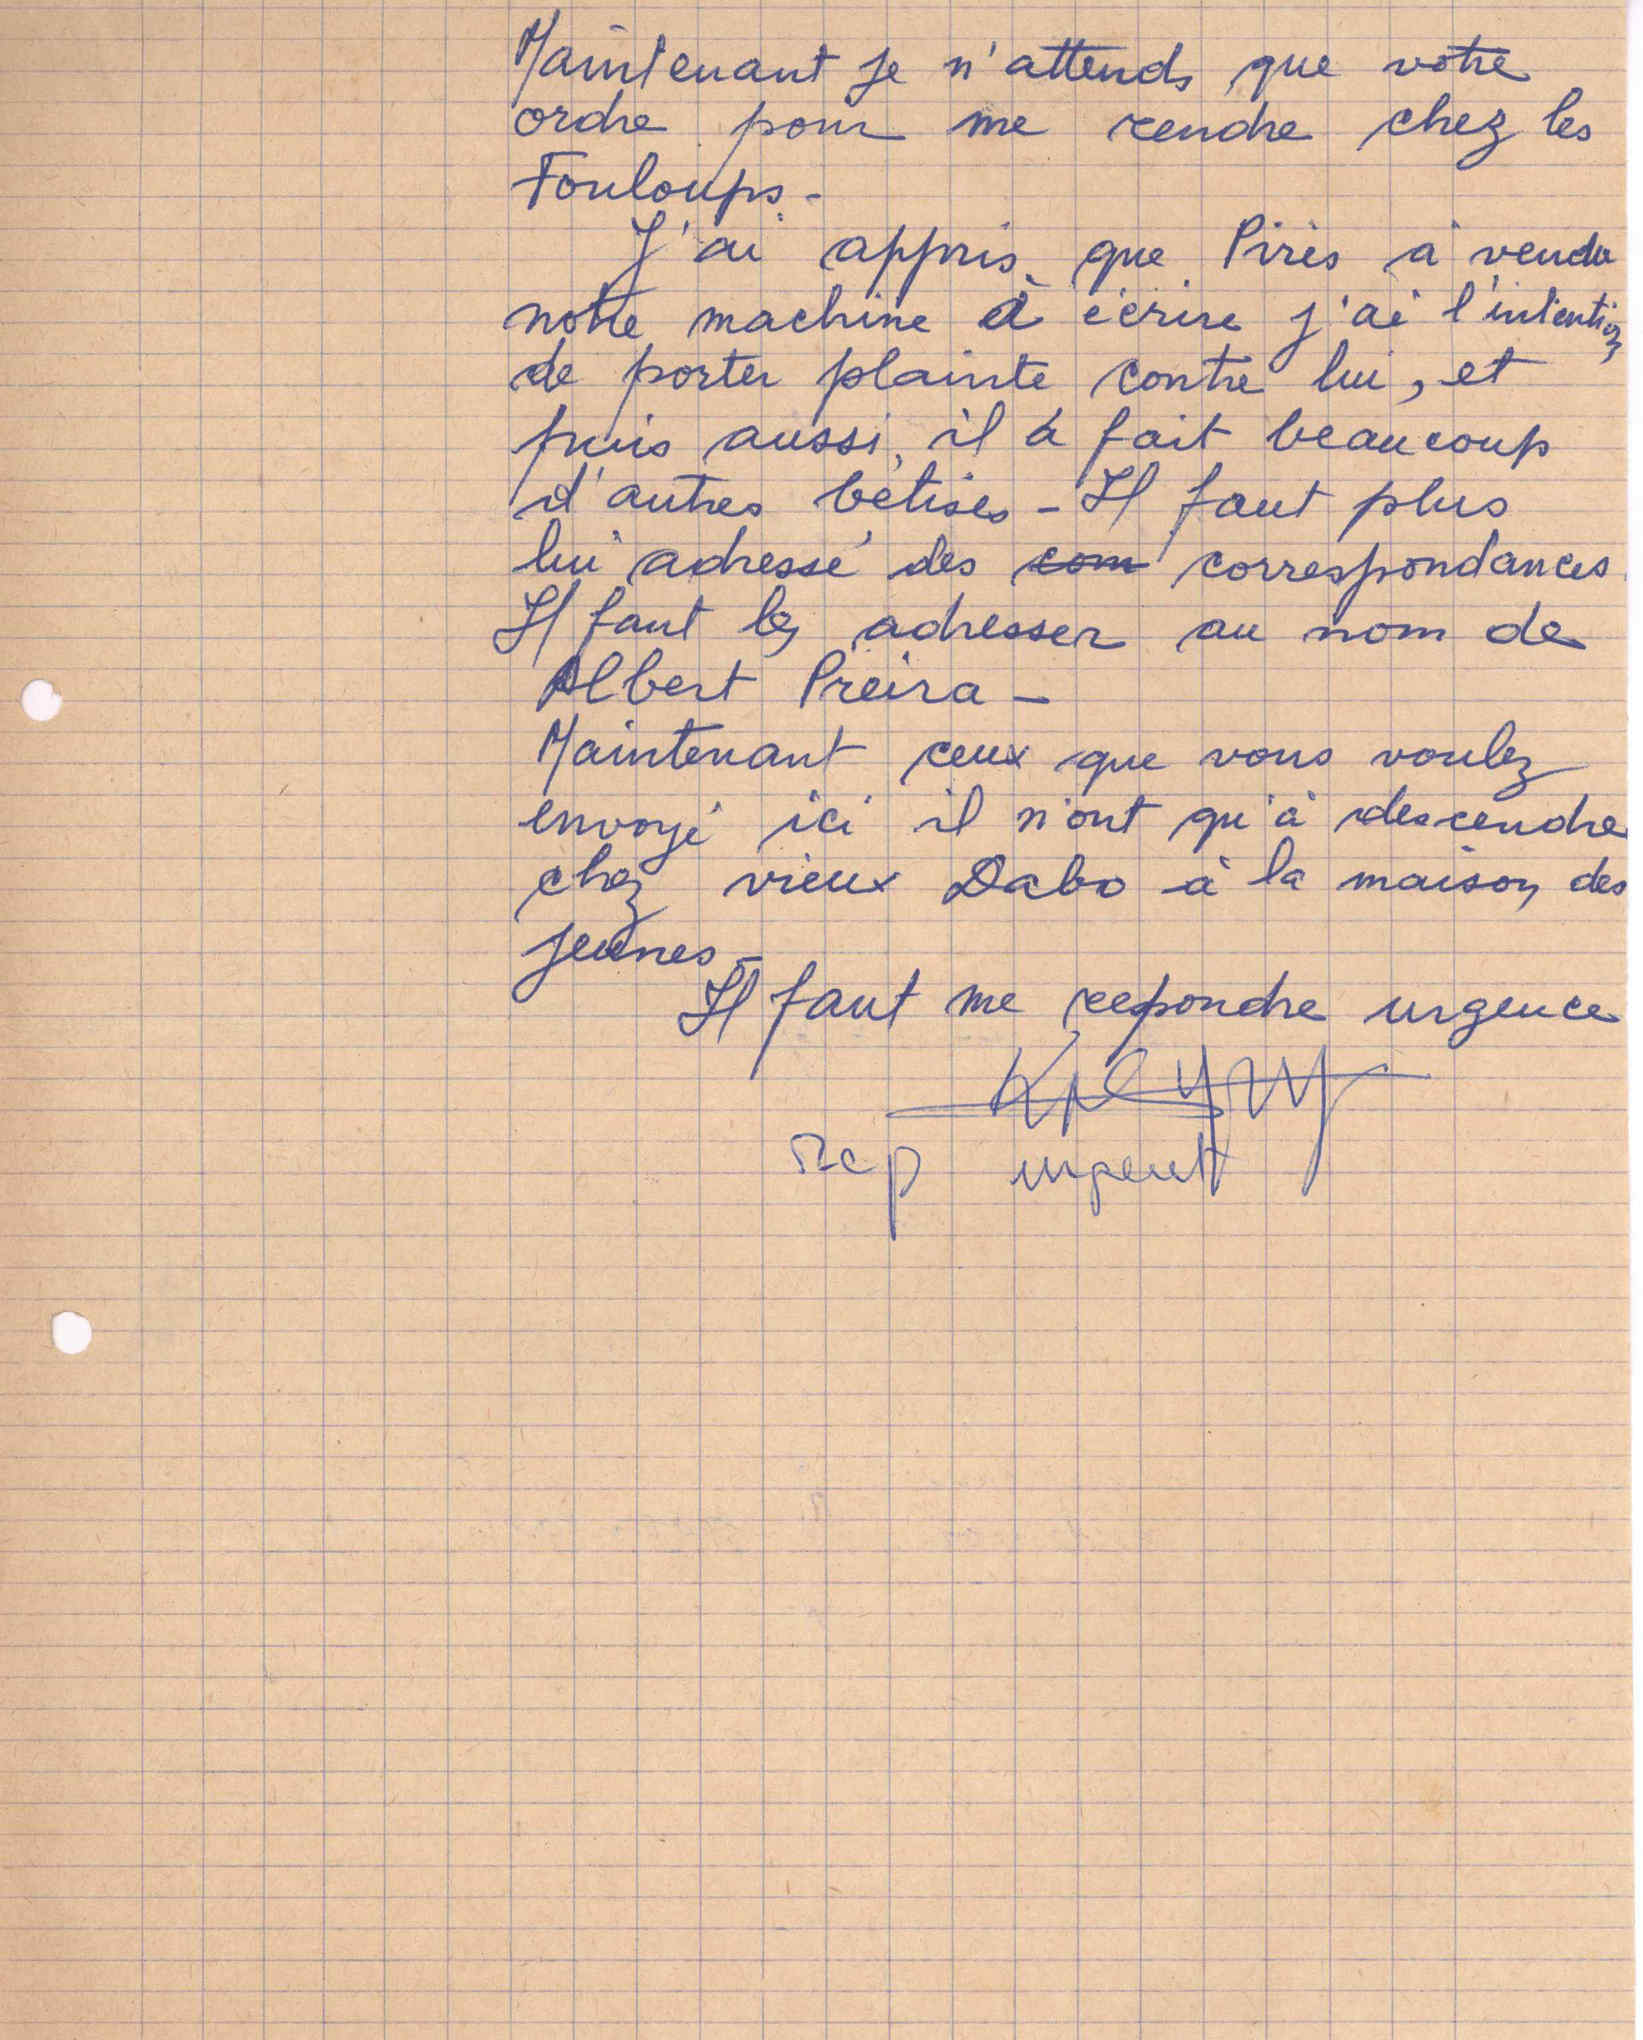 Maintenant je n'attends que votre
ordre pour me rendre chez les
Fouloups -
J'ai appris que Pirès à vendu
notre machine à écrire j'ai l'intention
de porter plainte contre lui, et
puis aussi, il à fait beaucoup
d'autres bétises - Il faut plus
lui adressé des com correspondances.
Il faut les adresser au nom de
Albert Preira -
Maintenant ceux que vous voulez
envoyé ici il n'ont qu'à descendre
chez vieux Dabo à la maison des
jeunes -
Il faut me repondre urgence
Rep urgent